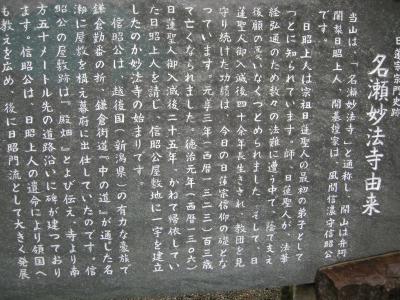 日蓮宗宗門史跡
名瀬妙法寺由来
当山は、「名瀬妙法寺」と通称し、開山は弁阿
闍梨日昭上人、開基檀家は、風間信濃守信昭公
です。
日昭上人は宗祖日蓮聖人の最初の弟子として
つとに知られています。師・日蓮聖人が、法華
経弘通のため数々の法難に遭う中で、陰で支え
後顧の憂いなくつとめられました。そして、日
蓮聖人御入滅後四十余年長生きされ、教団を見
守り続けた功績は、今日の日蓮宗信仰の礎とな
っています。元亨三年(西暦一三二三)百三歳
で亡くなられました。徳治元年(西暦一三〇六)
日蓮聖人御入滅後二十五年、かねて帰依してい
た日昭上人を請じ、信昭公屋敷地に一宇を建立
したのが妙法寺の始まりです。
信昭公は、越後国(新潟県)の有力な豪族で
鎌倉勤番の折、鎌倉街道『中の道』が通じた名
瀬に屋敷を構え幕府に出仕していたのです。信
昭公の屋敷跡は『殿畑』とよび伝え、寺より南
方五十メートル先の道路沿いに碑が建っており
ます。信昭公は、日昭上人の遺命により領国へ
も教えを広め、後に日昭門流として大きく発展